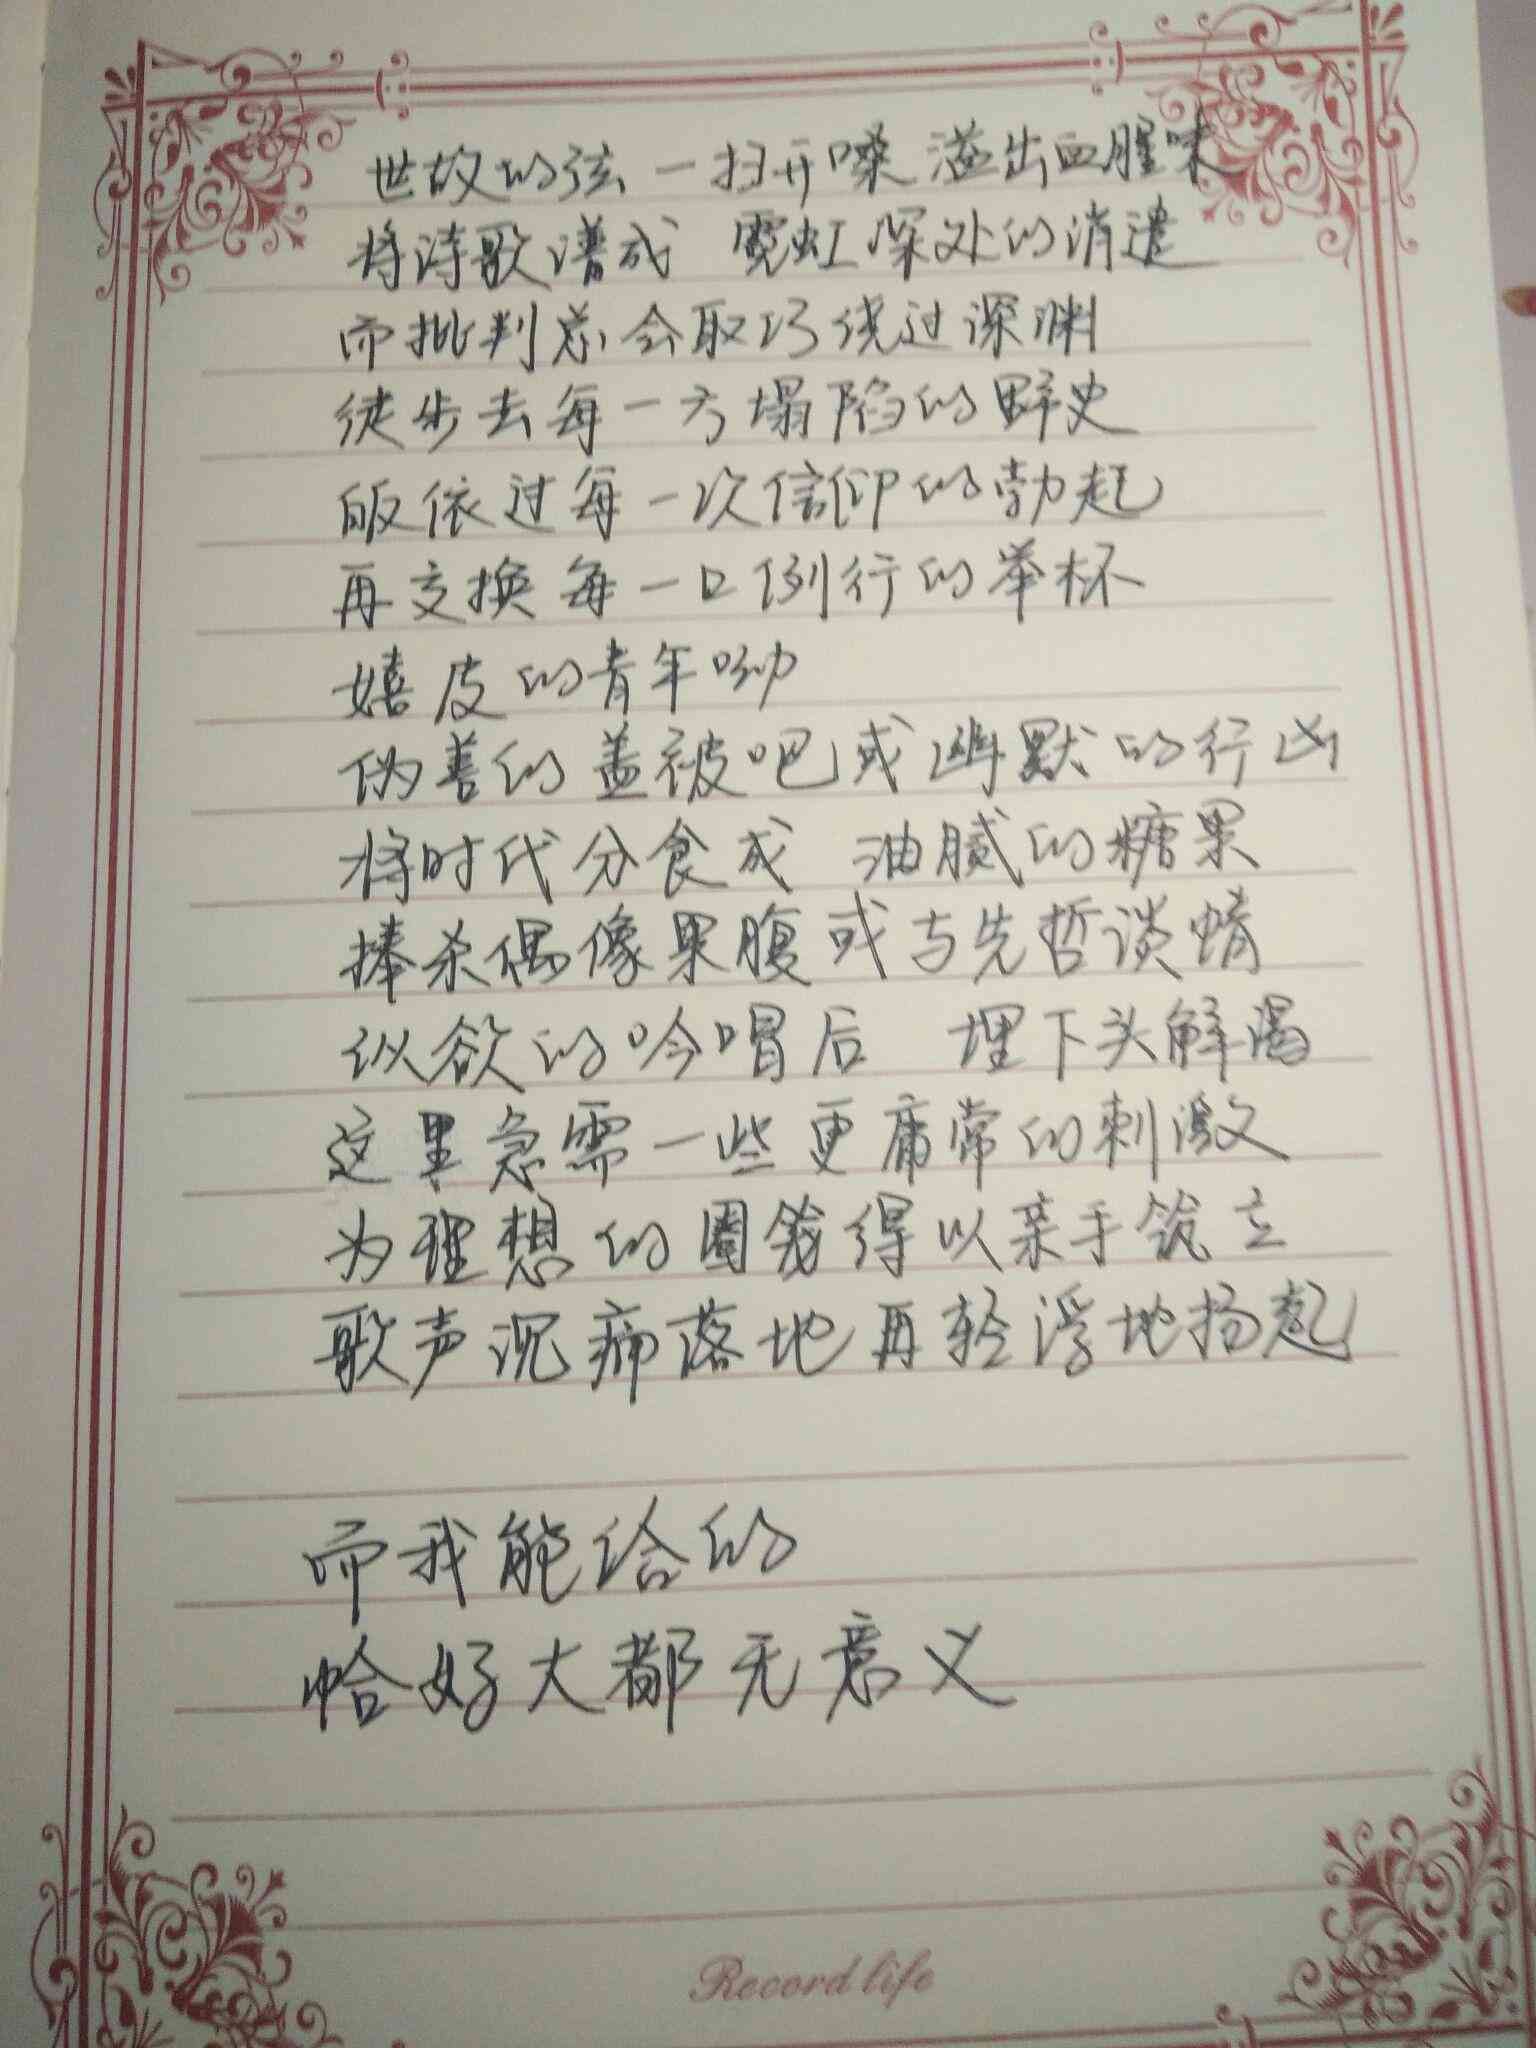 世故的弦一扫开嗓 溢出血腥味
将诗歌谱成 霓虹深处的消遣
而批判总会取巧绕过深渊
徒步去每一方塌陷的野史
皈依过每一次信仰的勃起
再交换每一口例行的举杯
嬉皮的青年呦
伪善的盖被吧或幽默的行凶
将时代分食成 油腻的糖果
捧杀偶像果腹或与先哲谈情
纵欲的吟唱后 埋下头解渴
这里急需一些更庸常的刺激
为理想的圈钱得以亲手筑立
歌声沉痛落地再轻浮地扬起
而我能给的
恰好大都无意义
Record life